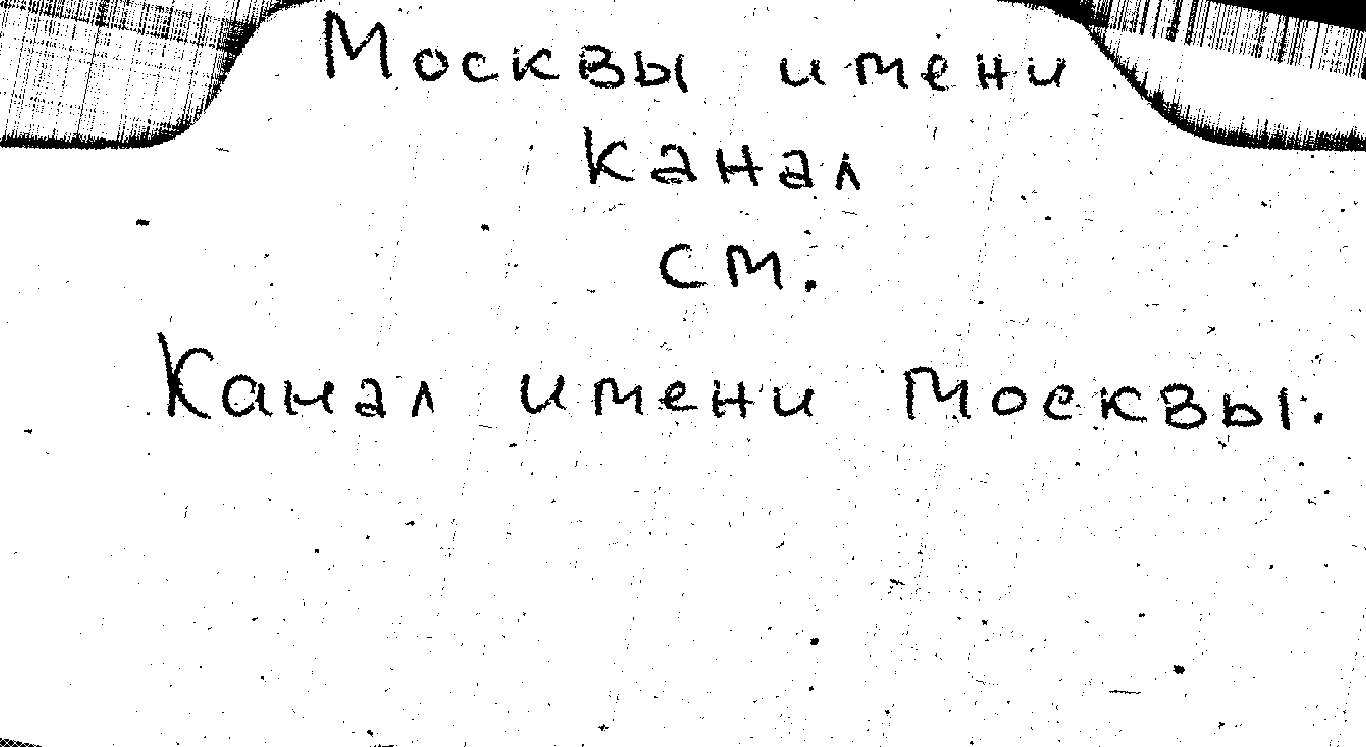 Москвы имени
канал
см.
Канал имени Москвы.